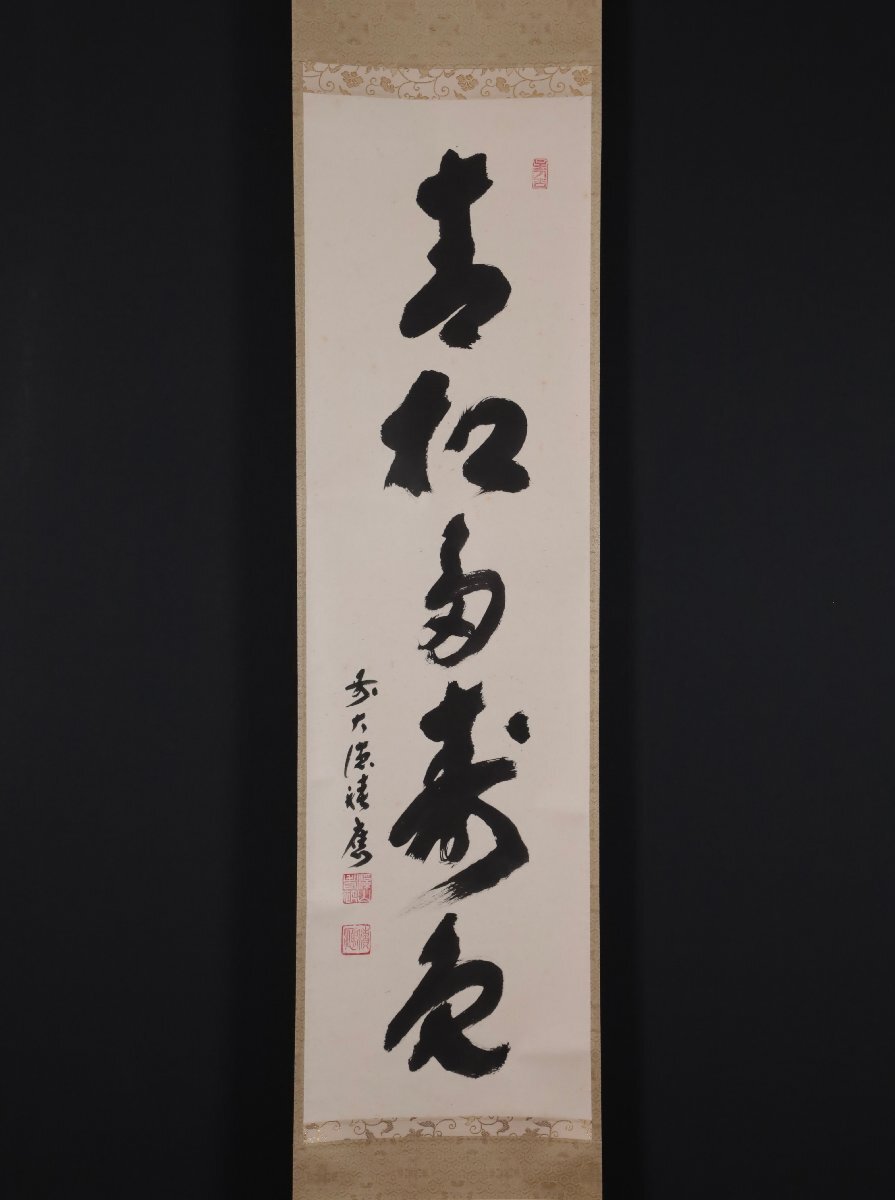 青松多寿色
前大徳積應